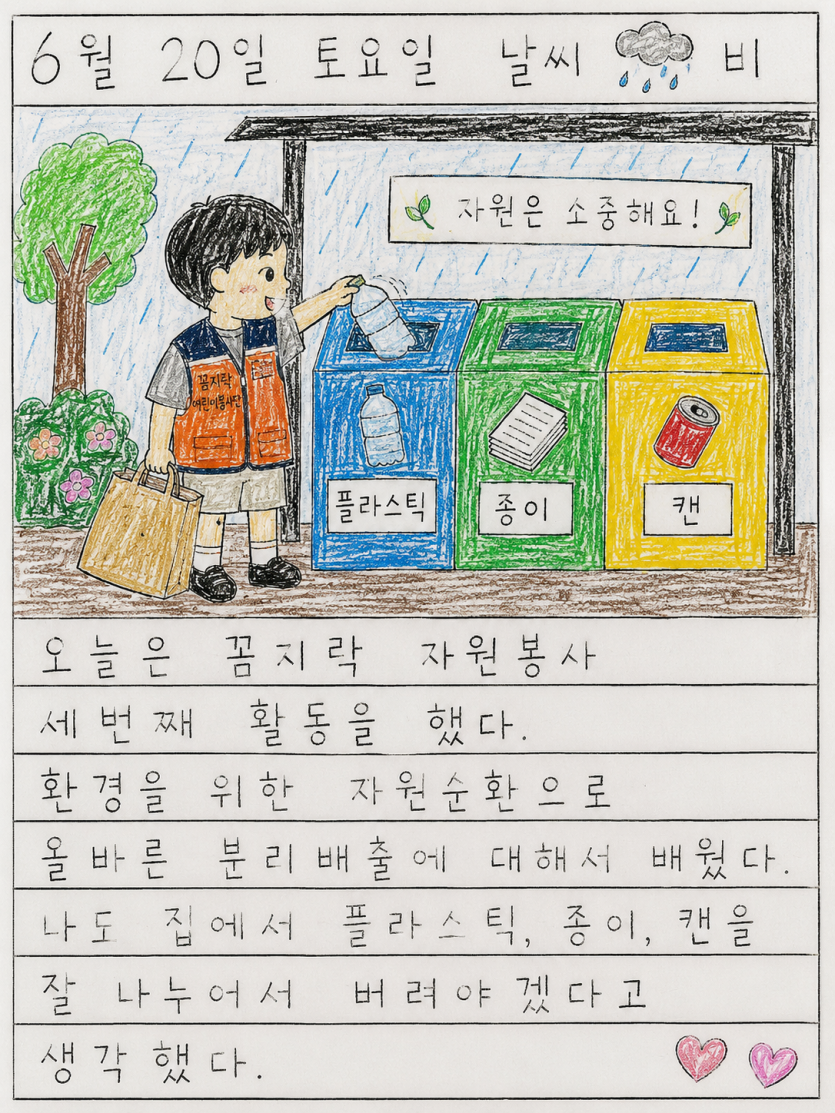 6월 20일 토요일 날씨 비
자원은 소중해요!
꼼지락
어린이봉사단
플라스틱
종이
캔
오늘은 꼼지락 자원봉사
세번째 활동을 했다.
환경을 위한 자원순환으로
올바른 분리배출에 대해서 배웠다.
나도 집에서 플라스틱, 종이, 캔을
잘 나누어서 버려야겠다고
생각했다.